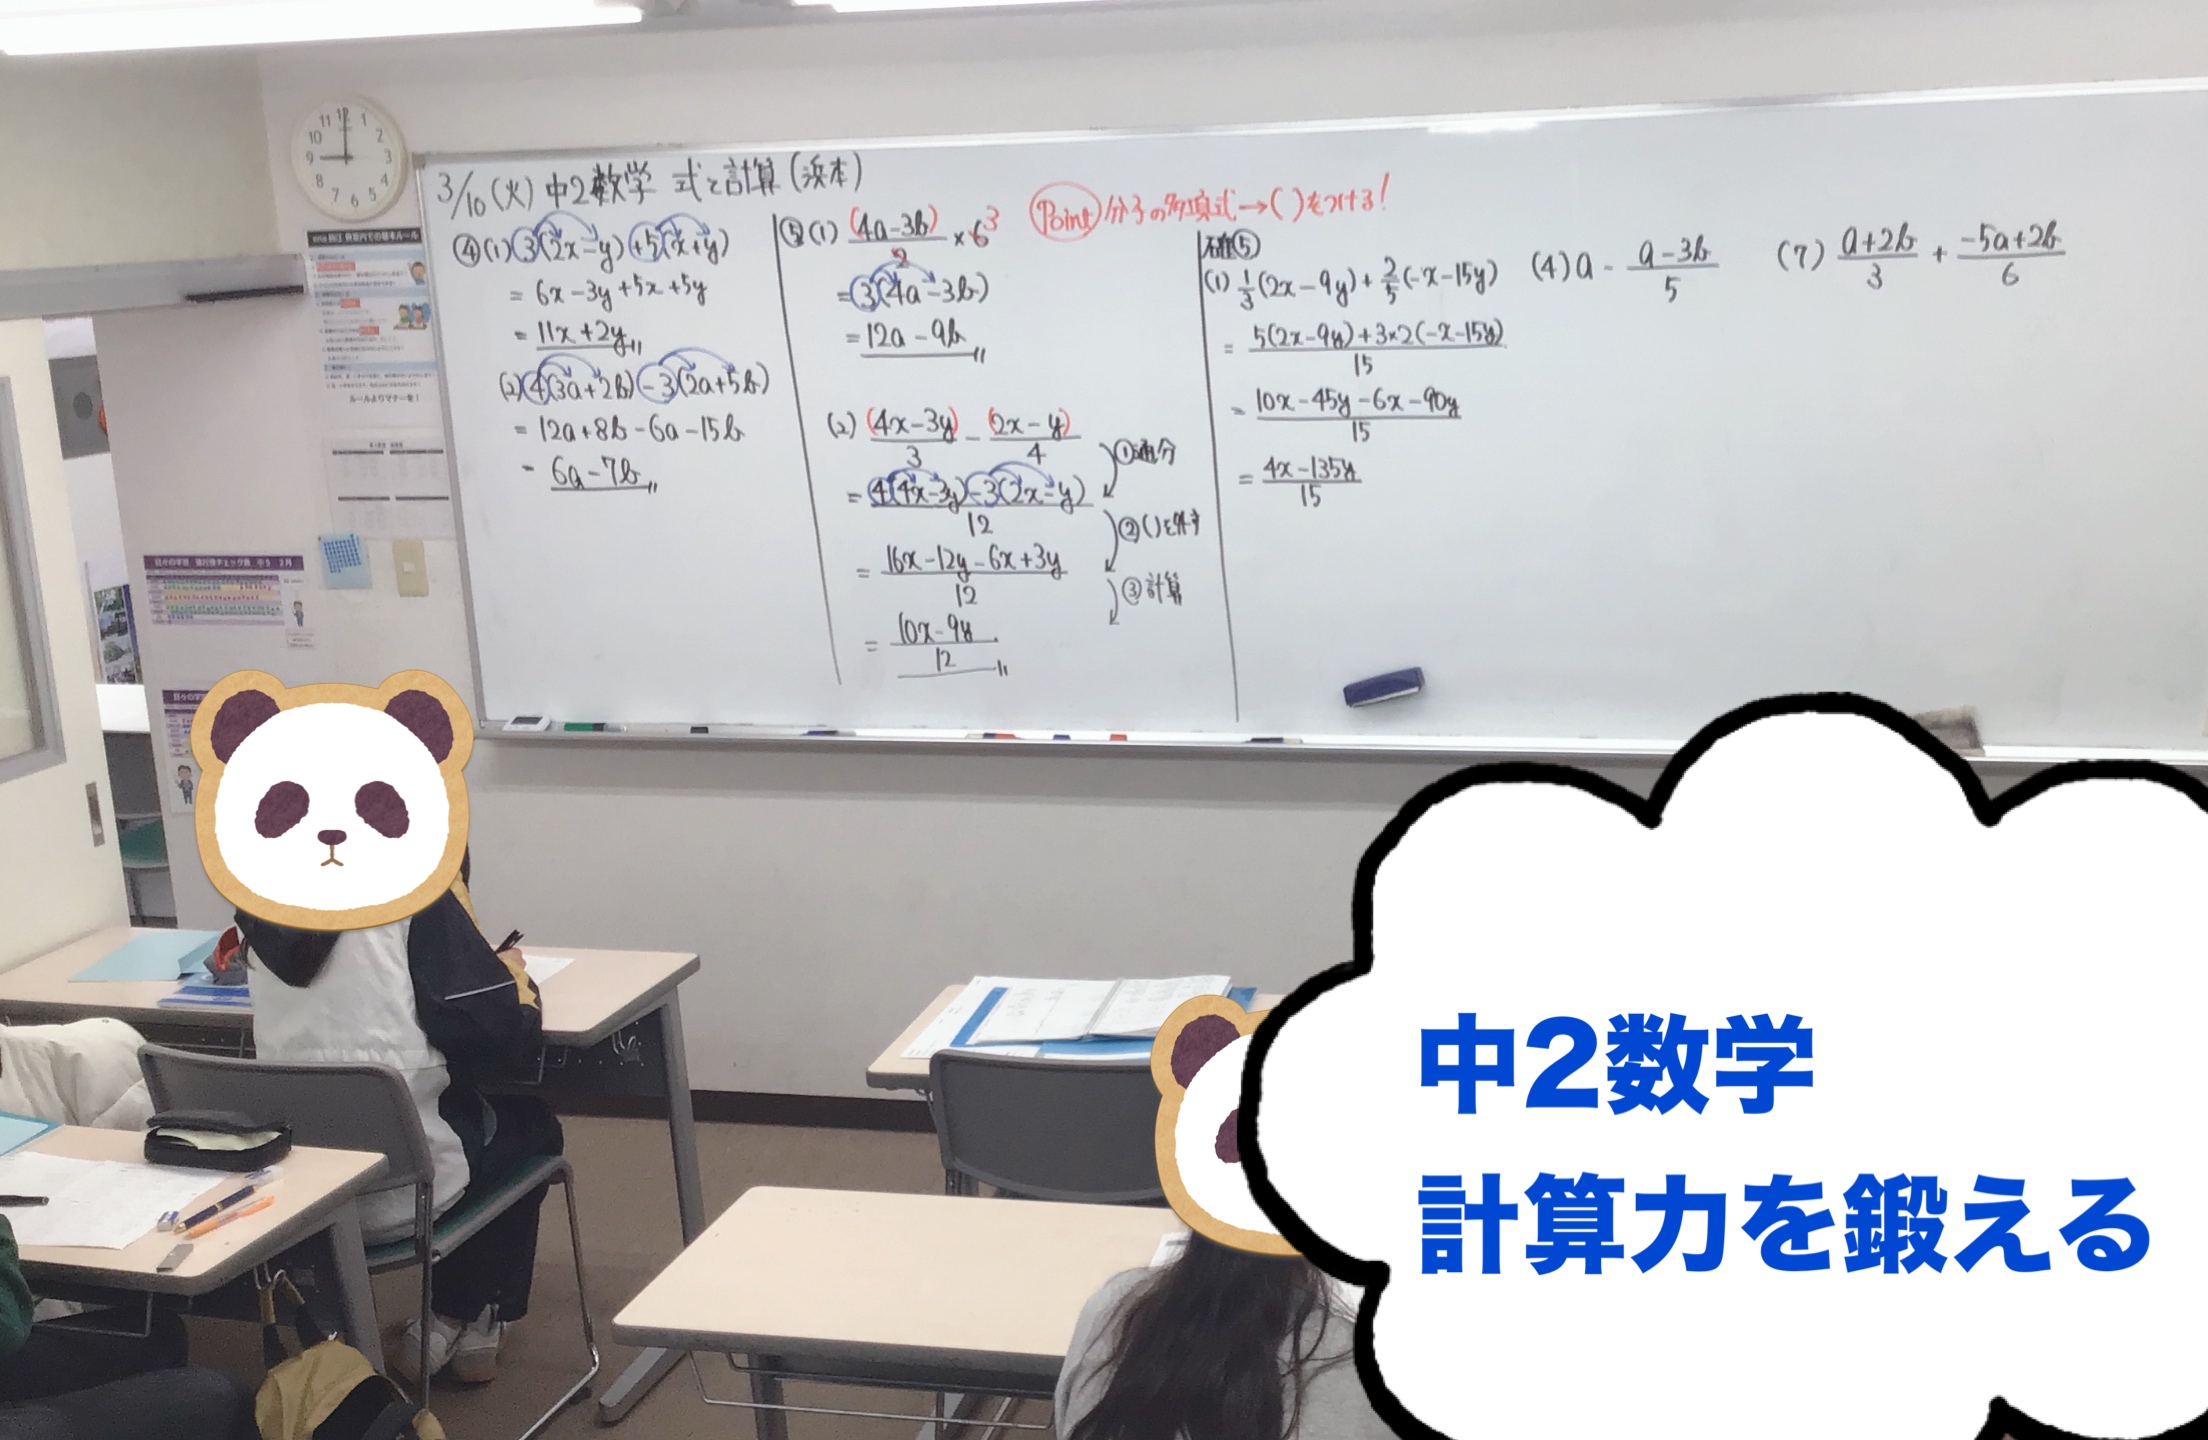 3/10(火) 中2数学 式と計算(浜本)
④(1) 3(2x-y)+5(x+y)
= 6x-3y+5x+5y
= 11x+2y
(2) 4(3a+2b)-3(2a+5b)
= 12a+8b-6a-15b
= 6a-7b
⑤(1) (4a-3b)/2 × 6 3
= 3(4a-3b)
= 12a-9b
(2) (4x-3y)/3 - (2x-y)/4
①通分
= 4(4x-3y)-3(2x-y)/12
②( )を外す
= 16x-12y-6x+3y/12
③計算
= 10x-9y/12
Point 分子の多項式→( )をつける!
確⑤
(1) 1/3(2x-9y)+2/5(-x-15y)
= 5(2x-9y)+3×2(-x-15y)/15
= 10x-45y-6x-90y/15
= 4x-135y/15
(4) a - a-3b/5
(7) a+2b/3 + -5a+2b/6
11 12 1
10 2
9 3
8 4
7 6 5
ルールよりマナーを!
中2数学
計算力を鍛える